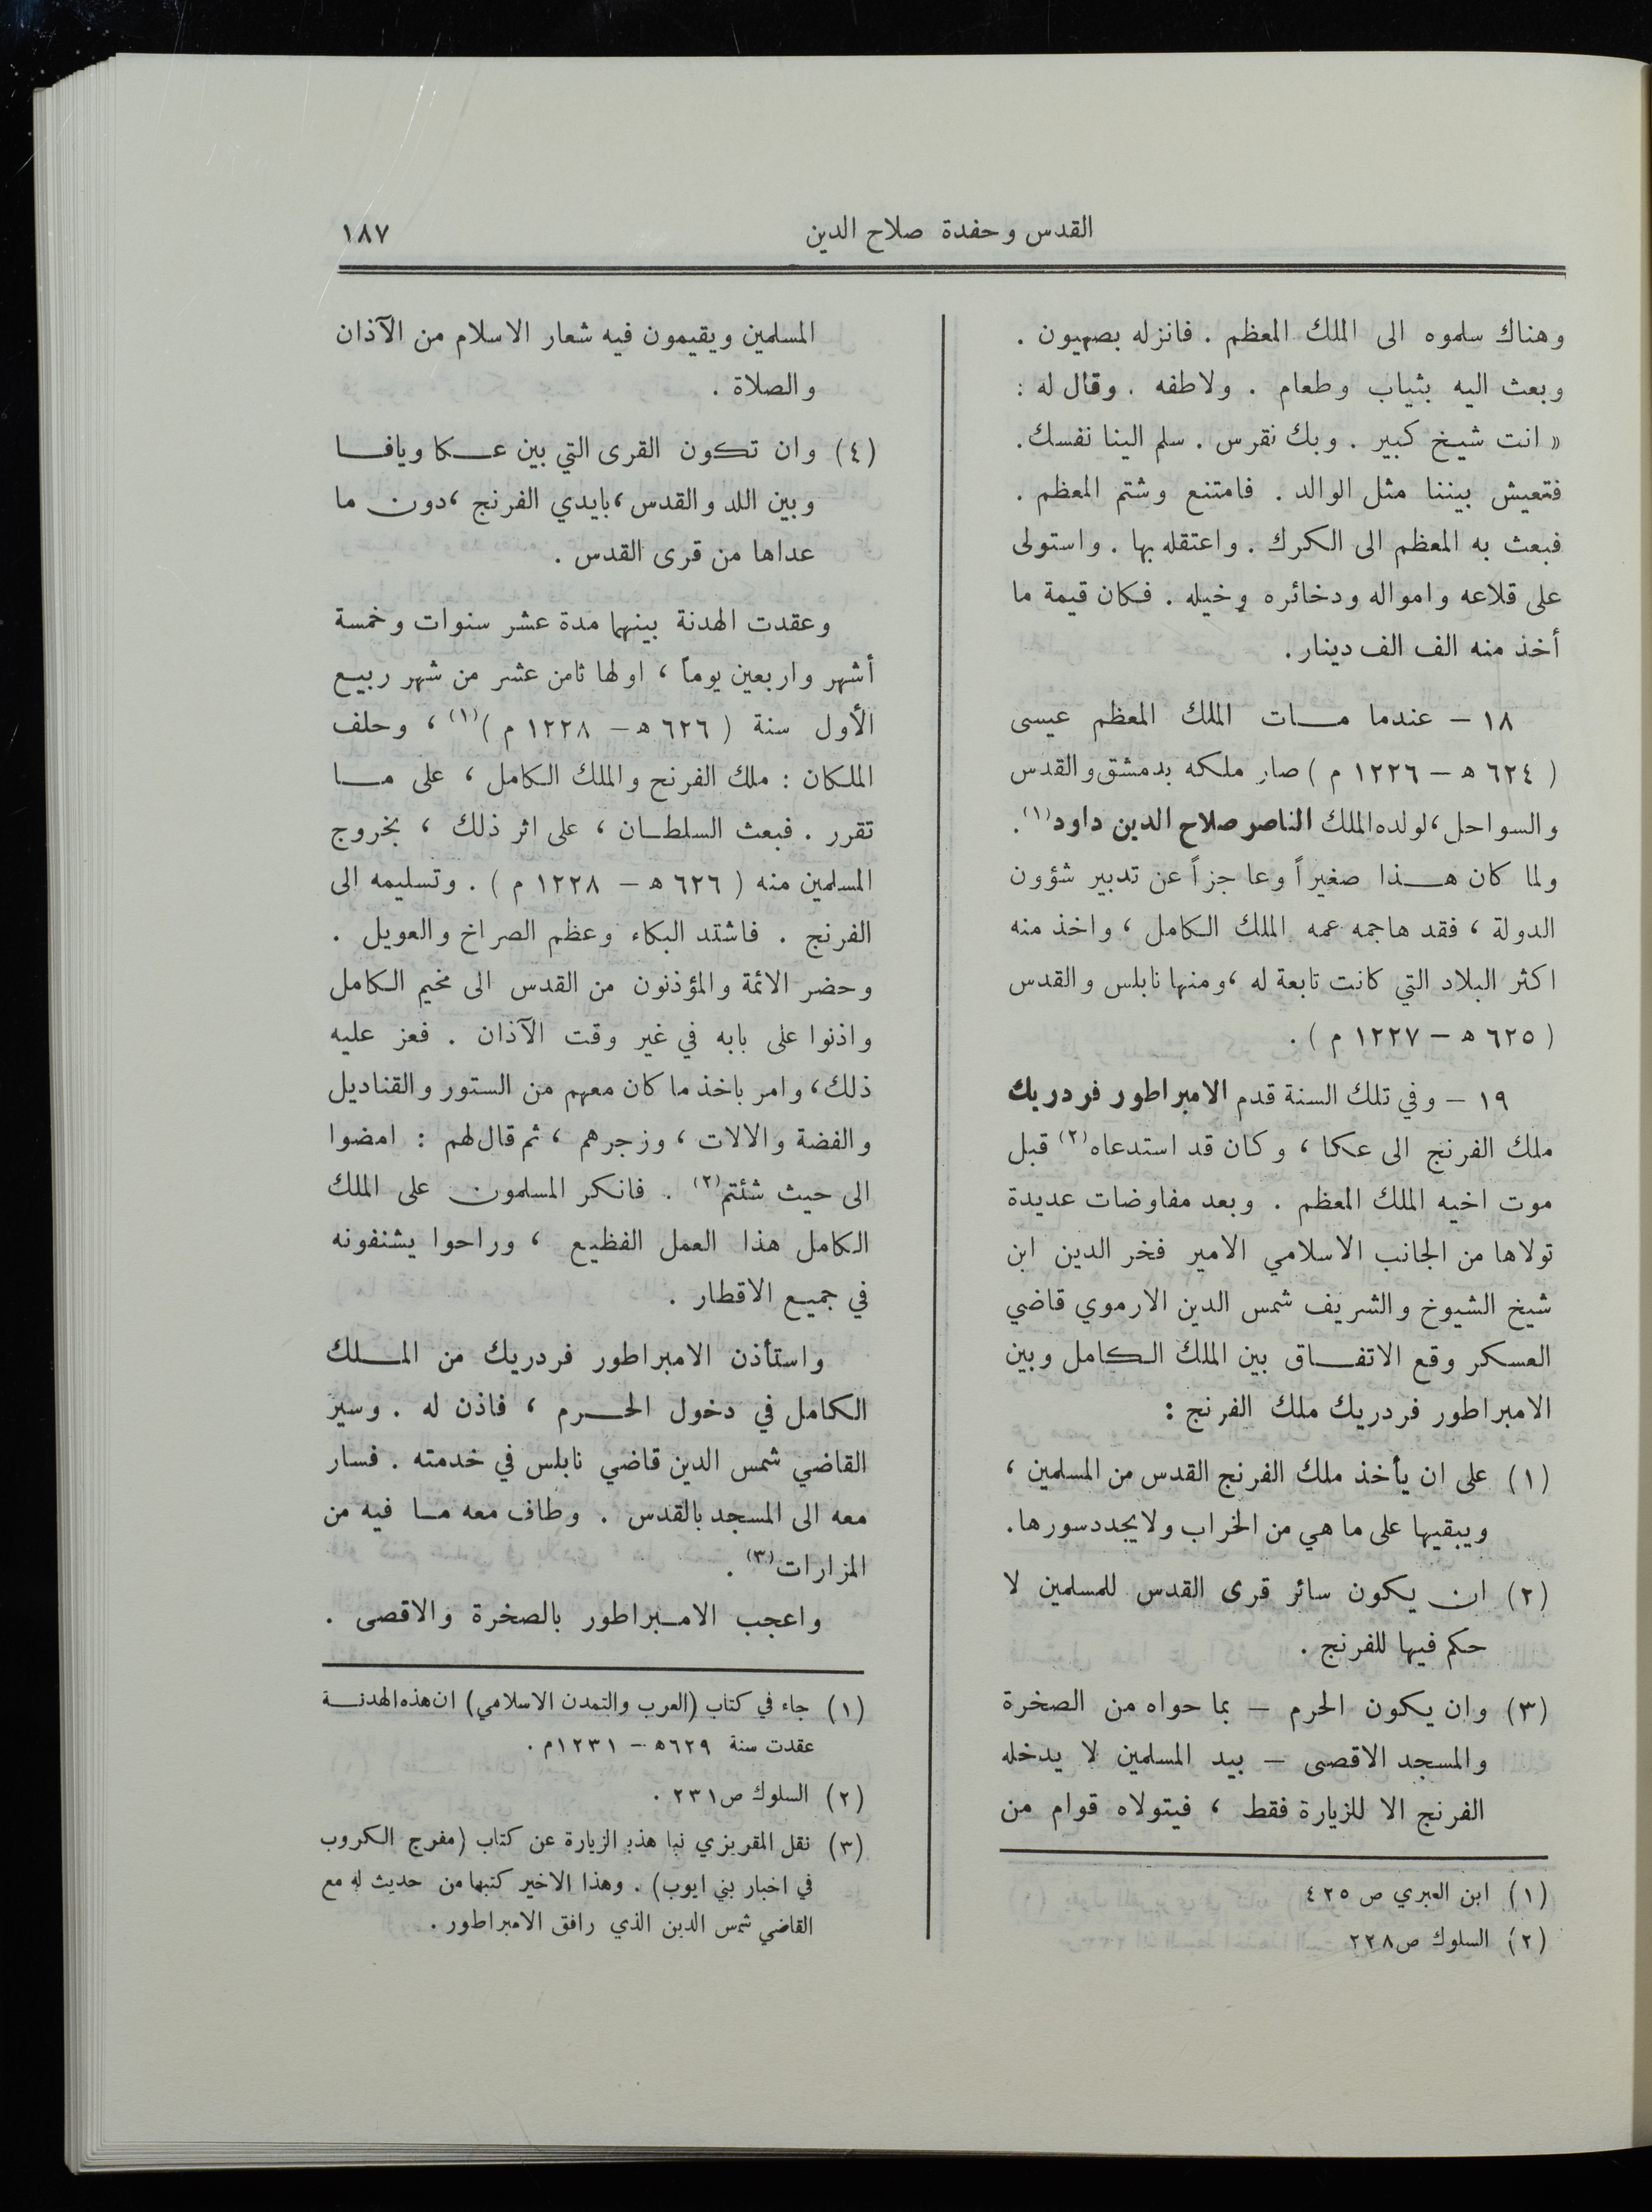 القدس وحفدة صلاح الدين
١٨٧
وهناك سلموه الى الملك المعظم . فانزله بصهيون .
وبعث اليه بثياب وطعام . ولاطفه . وقال له :
« انت شيخ كبير . وبك نقرس . سلم الينا نفسك .
فتعيش بيننا مثل الوالد . فامتنع وشتم المعظم .
فبعث به المعظم الى الكرك . واعتقله بها . واستولى
على قلاعه وامواله ودخائره وخيله . فكان قيمة ما
أخذ منه الف الف دينار .
١٨ – عندما مات الملك المعظم عيسى
( ٦٢٤ ه – ١٢٢٦ م ) صار ملكه بدمشق والقدس
والسواحل ، لولده الملك الناصر صلاح الدين داود(١) .
ولما كان هذا صغيراً وعاجزاً عن تدبير شؤون
الدولة ، فقد هاجمه عمه الملك الكامل ، واخذ منه
اكثر البلاد التي كانت تابعة له ، ومنها نابلس والقدس
( ٦٢٥ ه – ١٢٢٧ م ) .
١٩ – وفي تلك السنة قدم الامبراطور فردريك
ملك الفرنج الى عكا ، وكان قد استدعاه(٢) قبل
موت اخيه الملك المعظم . وبعد مفاوضات عديدة
تولاها من الجانب الاسلامي الامير فخر الدين ابن
شيخ الشيوخ والشريف شمس الدين الارموي قاضي
العسكر وقع الاتفاق بين الملك الكامل وبين
الامبراطور فردريك ملك الفرنج :
(١) على ان يأخذ ملك الفرنج القدس من المسلمين ،
ويبقيها على ما هي من الخراب ولا يجدد سورها .
(٢) ان يكون سائر قرى القدس للمسلمين لا
حكم فيها للفرنج .
(٣) وان يكون الحرم – بما حواه من الصخرة
والمسجد الاقصى – بيد المسلمين لا يدخله
الفرنج الا للزيارة فقط ، فيتولاه قوام من
(١) ابن العبري ص ٤٢٥
(٢) السلوك ص ٢٢٨
المسلمين ويقيمون فيه شعار الاسلام من الآذان
والصلاة .
(٤) وان تكون القرى التي بين عكا ويافا
وبين اللد والقدس ، بايدي الفرنج ، دون ما
عداها من قرى القدس .
وعقدت الهدنة بينهما مدة عشر سنوات وخمسة
أشهر واربعين يوماً ، اولها ثامن عشر من شهر ربيع
الأول سنة ( ٦٢٦ ه – ١٢٢٨ م )(١) ، وحلف
الملكان : ملك الفرنج والملك الكامل ، على ما
تقرر . فبعث السلطان ، على اثر ذلك ، بخروج
المسلمين منه ( ٦٢٦ ه – ١٢٢٨ م ) . وتسليمه الى
الفرنج . فاشتد البكاء وعظم الصراخ والعويل .
وحضر الائمة والمؤذنون من القدس الى مخيم الكامل
واذنوا على بابه في غير وقت الآذان . فعز عليه
ذلك ، وامر باخذ ما كان معهم من الستور والقناديل
والفضة والالات ، وزجرهم ، ثم قال لهم : امضوا
الى حيث شئتم(٢) . فانكر المسلمون على الملك
الكامل هذا العمل الفظيع ، وراحوا يشنفونه
في جميع الاقطار .
واستأذن الامبراطور فردريك من الملك
الكامل في دخول الحرم ، فاذن له . وسير
القاضي شمس الدين قاضي نابلس في خدمته . فسار
معه الى المسجد بالقدس . وطاف معه ما فيه من
المزارات(٣) .
واعجب الامبراطور بالصخرة والاقصى .
(١) جاء في كتاب (العرب والتمدن الاسلامي) ان هذه الهدنة
عقدت سنة ٦٢٩ه – ١٢٣١م .
(٢) السلوك ص ٢٣١ .
(٣) نقل المقريزي نبا هذه الزيارة عن كتاب (مفرج الكروب
في اخبار بني ايوب) . وهذا الاخير كتبها من حديث له مع
القاضي شمس الدين الذي رافق الامبراطور .